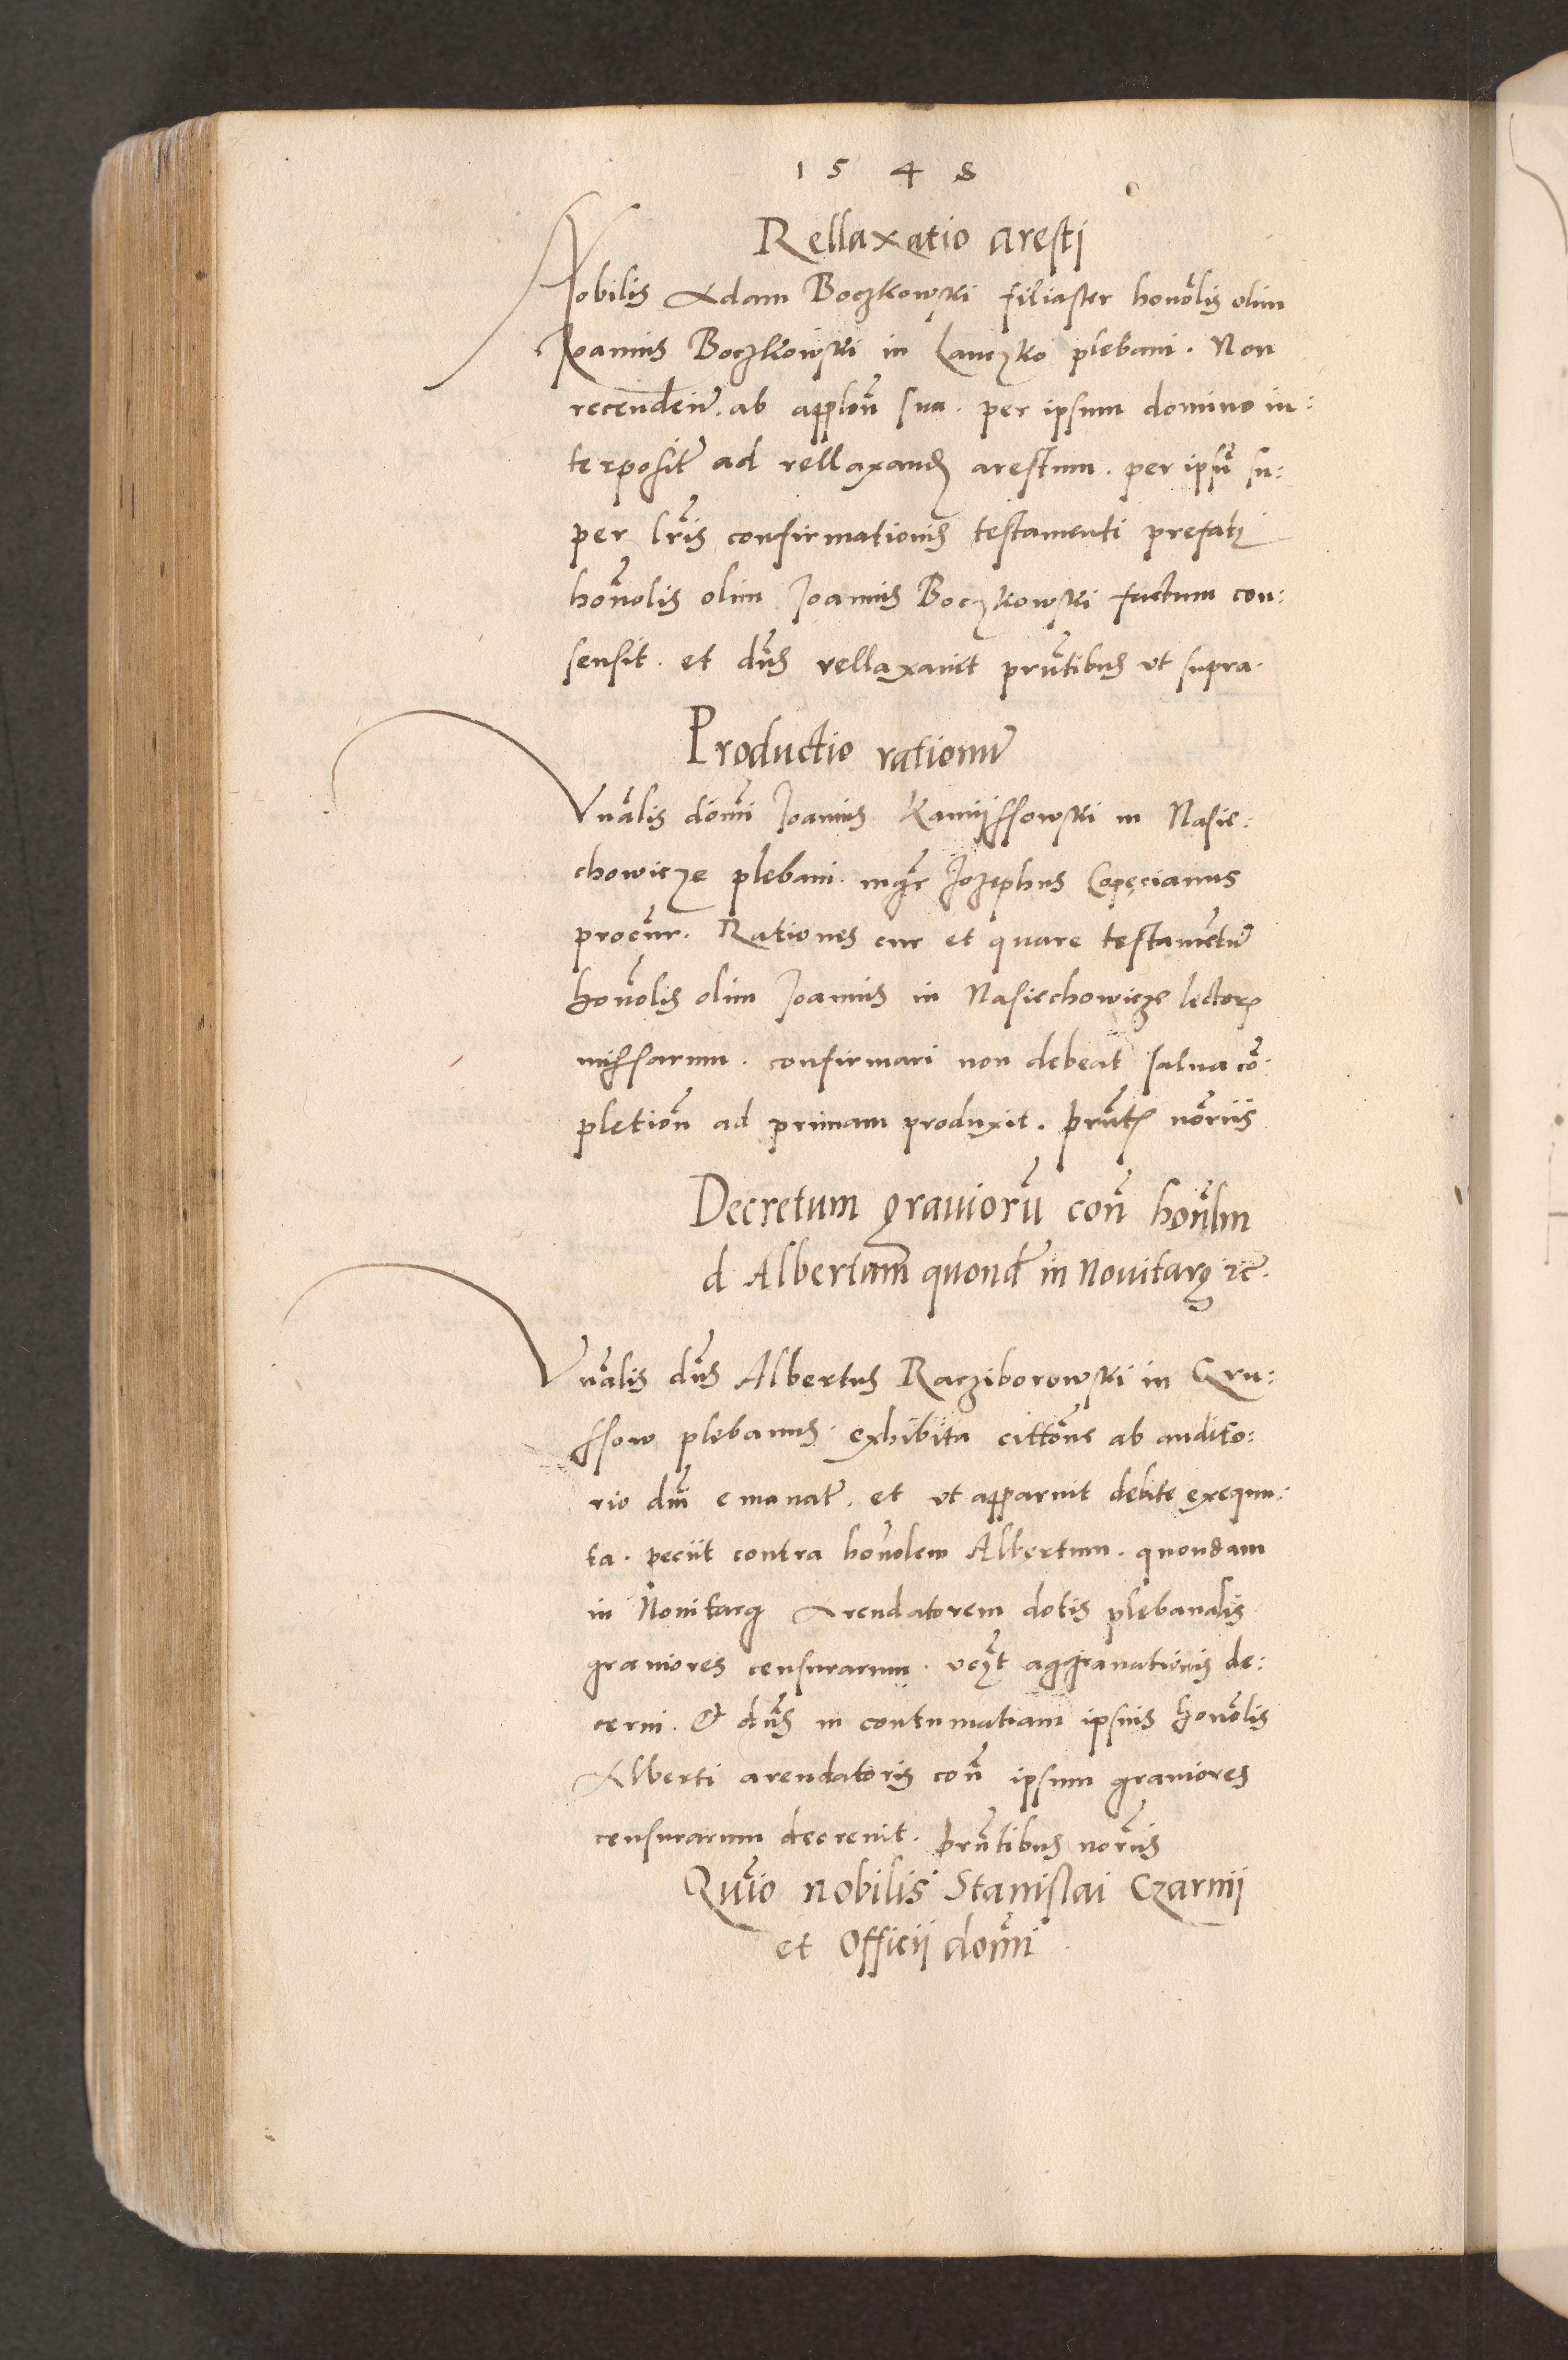 1548
Rellaxatio aresti
Nobilis Adam Boczkowski filiaster honōlis olim
Joannis Boczkowski in Lanczko plebani. Non
recendeñ. ab applōn sua. per ipsum domino in:
terposit̃ ad rellaxand̃ arestum. per ipsũ su:
per lr̃is confirmationis testamenti prefati
honōlis olim Joannis Boczkowski factum con:
sensit. et dñs rellaxavit prñtibus vt supra.
Productio rationũ
Vnãlis dom̃i Joannis Kamijssowski in Nasie:
chowicze plebani. mgr̃ Jozephus
procur̃. Rationes cur et quare testamentũ
honōlis olim Joannis in Nasiechowicze lector̃
missarum. confirmari non debeat salua cõ:
pletioñ ad primam produxit. prñt̃ norĩis
Decretum grauiorũ coñ honõlm
d Albertum quond̃ in Nouitarg zc̃.
Vnãlis dñs Albertus Racziborowski in Gru:
ssow plebanus. exhibita cittõne ab audito:
rio dñi emanat̃. et vt apparuit debite exequu:
ta. peciit contra honōlem Albertum. quondam
in Nouitarg Arendatorem dotis plebanalis
grauiores censurarum. vcz̃t aggrauationis de:
cerni. Et dñs in contumatiam ipsius honōlis
Alberti arendatoris coñ ipsum grauiores
censurarum decreuit. prñtibus norĩis
Quĩo nobilis Stanislai Czarnij
et Officij dom̃i